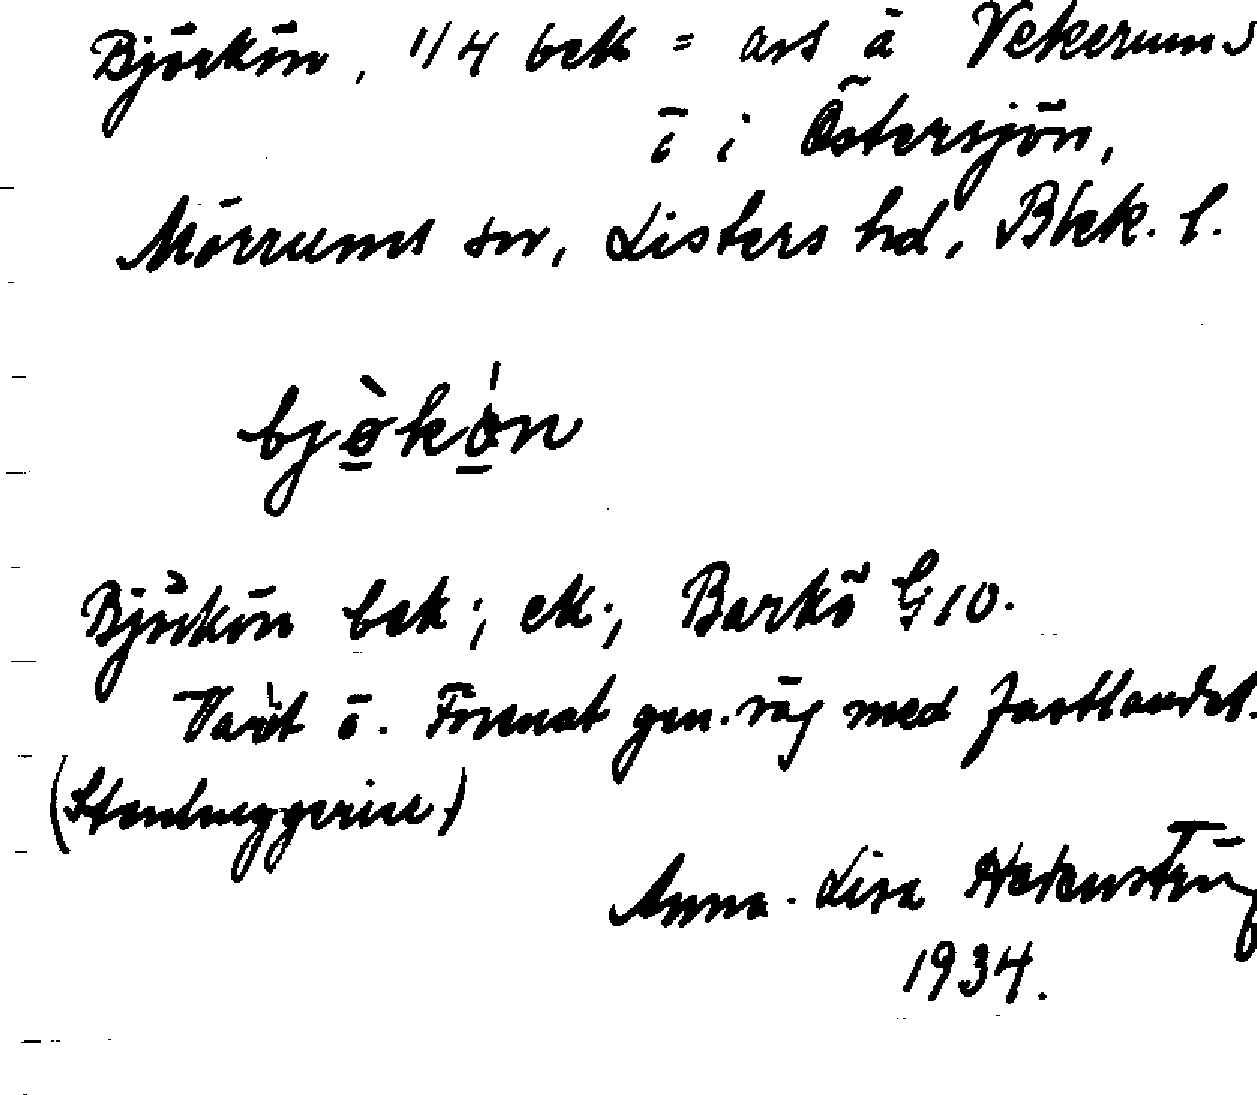 Björkön, 1/4 bek = avs å Vekerums
ö i Östersjön,
Mörrums sn, Listers hd, Blek. l.
bjø̀kø̀n
Björkön bek; ek; Barkö G10.
Varit ö. Förenat gen. väg med fastlandet.
(Stenhuggerier)
Anna-Lisa
1934.